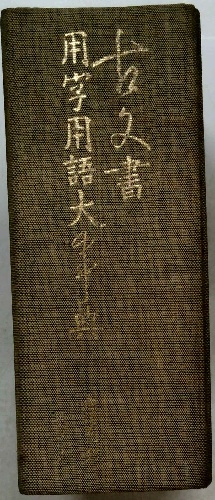 古文書
用字用語大字典